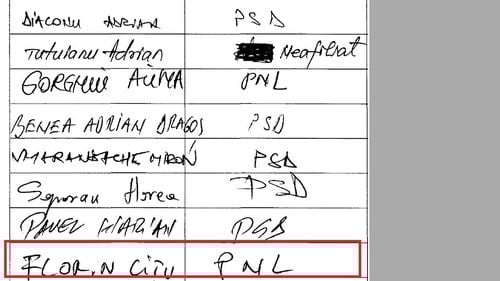 DIACONU ADRIAN PSD
Tutuianu Adrian Neafiliat
GORGHIU ALINA PNL
BENEA ADRIAN DRAGOS PSD
PSD
Soporan Florea PSD
PAVEL MARIAN PSD
FLORIN CITU PNL